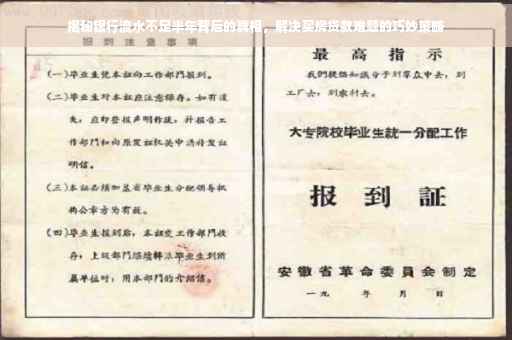 揭秘银行流水不足半年背后的真相，解决买房贷款难题的巧妙策略
报到注意事项
(一)毕业生凭本证向工作部门报到。
(二)毕业生对本证应注意保存。如有遗
失，应即登报声明作废，并报告工
作部门和向原发证机关申请补发证
明信。
(三)本证必须加盖省毕业生分配领导机
构公章方为有效。
(四)毕业生报到后，本证交工作部门收
存；上级部门继续转派毕业生到所
属单位时，用本部门的介绍信。
最高指示
我们提倡知识分子到群众中去，到
工厂去，到农村去。
大专院校毕业生统一分配工作
报到证
安徽省革命委员会制定
一九 年 月 日